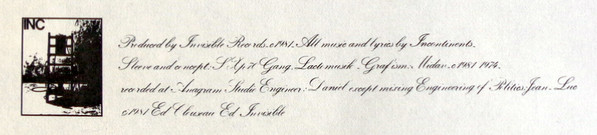 INC
Produced by Invisible Records. c1981. All music and lyrics by Incontinents.
Sleeve and concept. S'Up 70 Gang. Lacto musck. Grafism. Medan. c1981 1974.
recorded at Anagram Studio Engineer: Daniel except mixing Engineering of Politics Jean. Luc
c1981 Ed Clouseau Ed Invisible